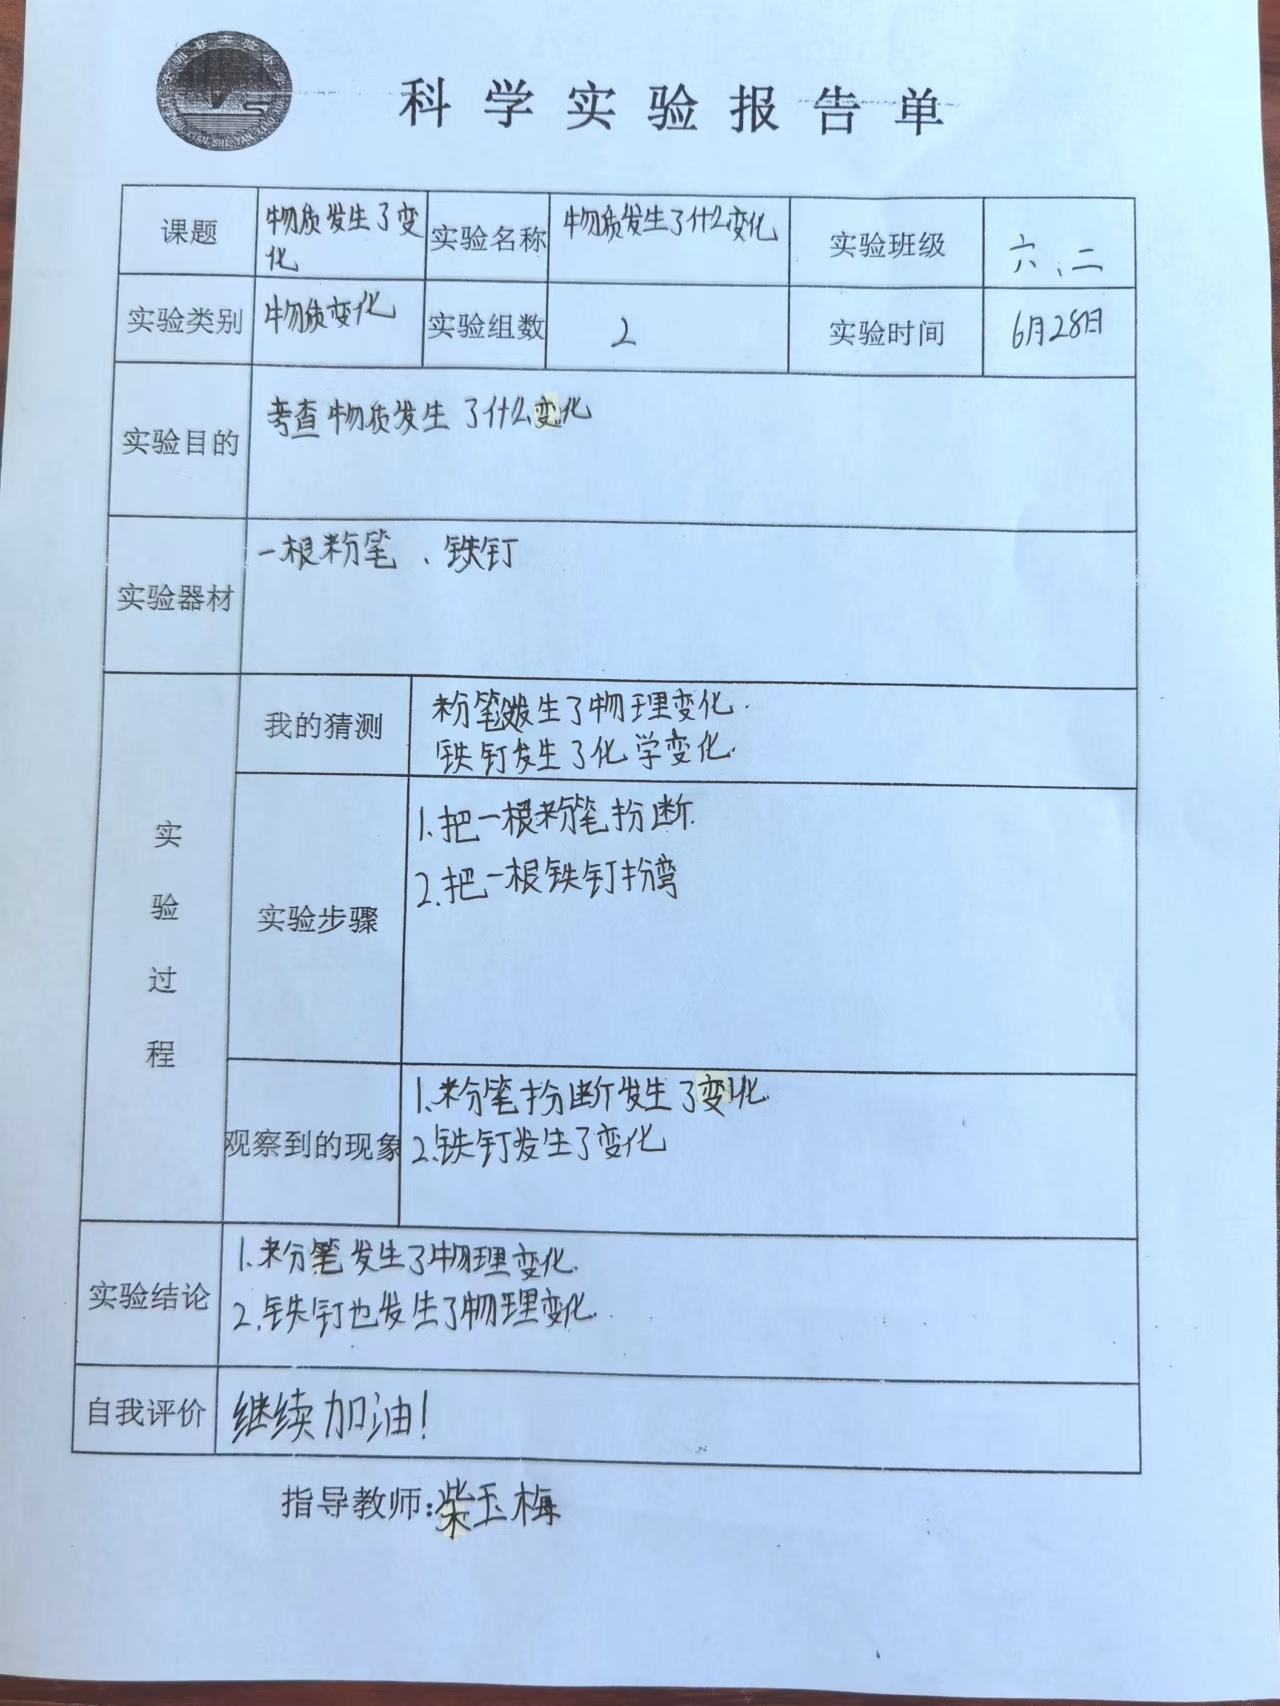 科学实验报告单
课题
物质发生了变
化
实验名称
物质发生了什么变化
实验班级
六、二
实验类别
物质变化
实验组数
2
实验时间
6月28日
实验目的
考查物质发生了什么变化
实验器材
一根粉笔、铁钉
实验过程
我的猜测
粉笔发生了物理变化.
铁钉发生了化学变化.
实验步骤
1.把一根粉笔扮断.
2.把一根铁钉扮弯
观察到的现象
1.粉笔扮断发生了变化.
2.铁钉发生了变化
实验结论
1.粉笔发生了物理变化.
2.铁钉也发生了物理变化.
自我评价
继续加油!
指导教师:柴玉梅